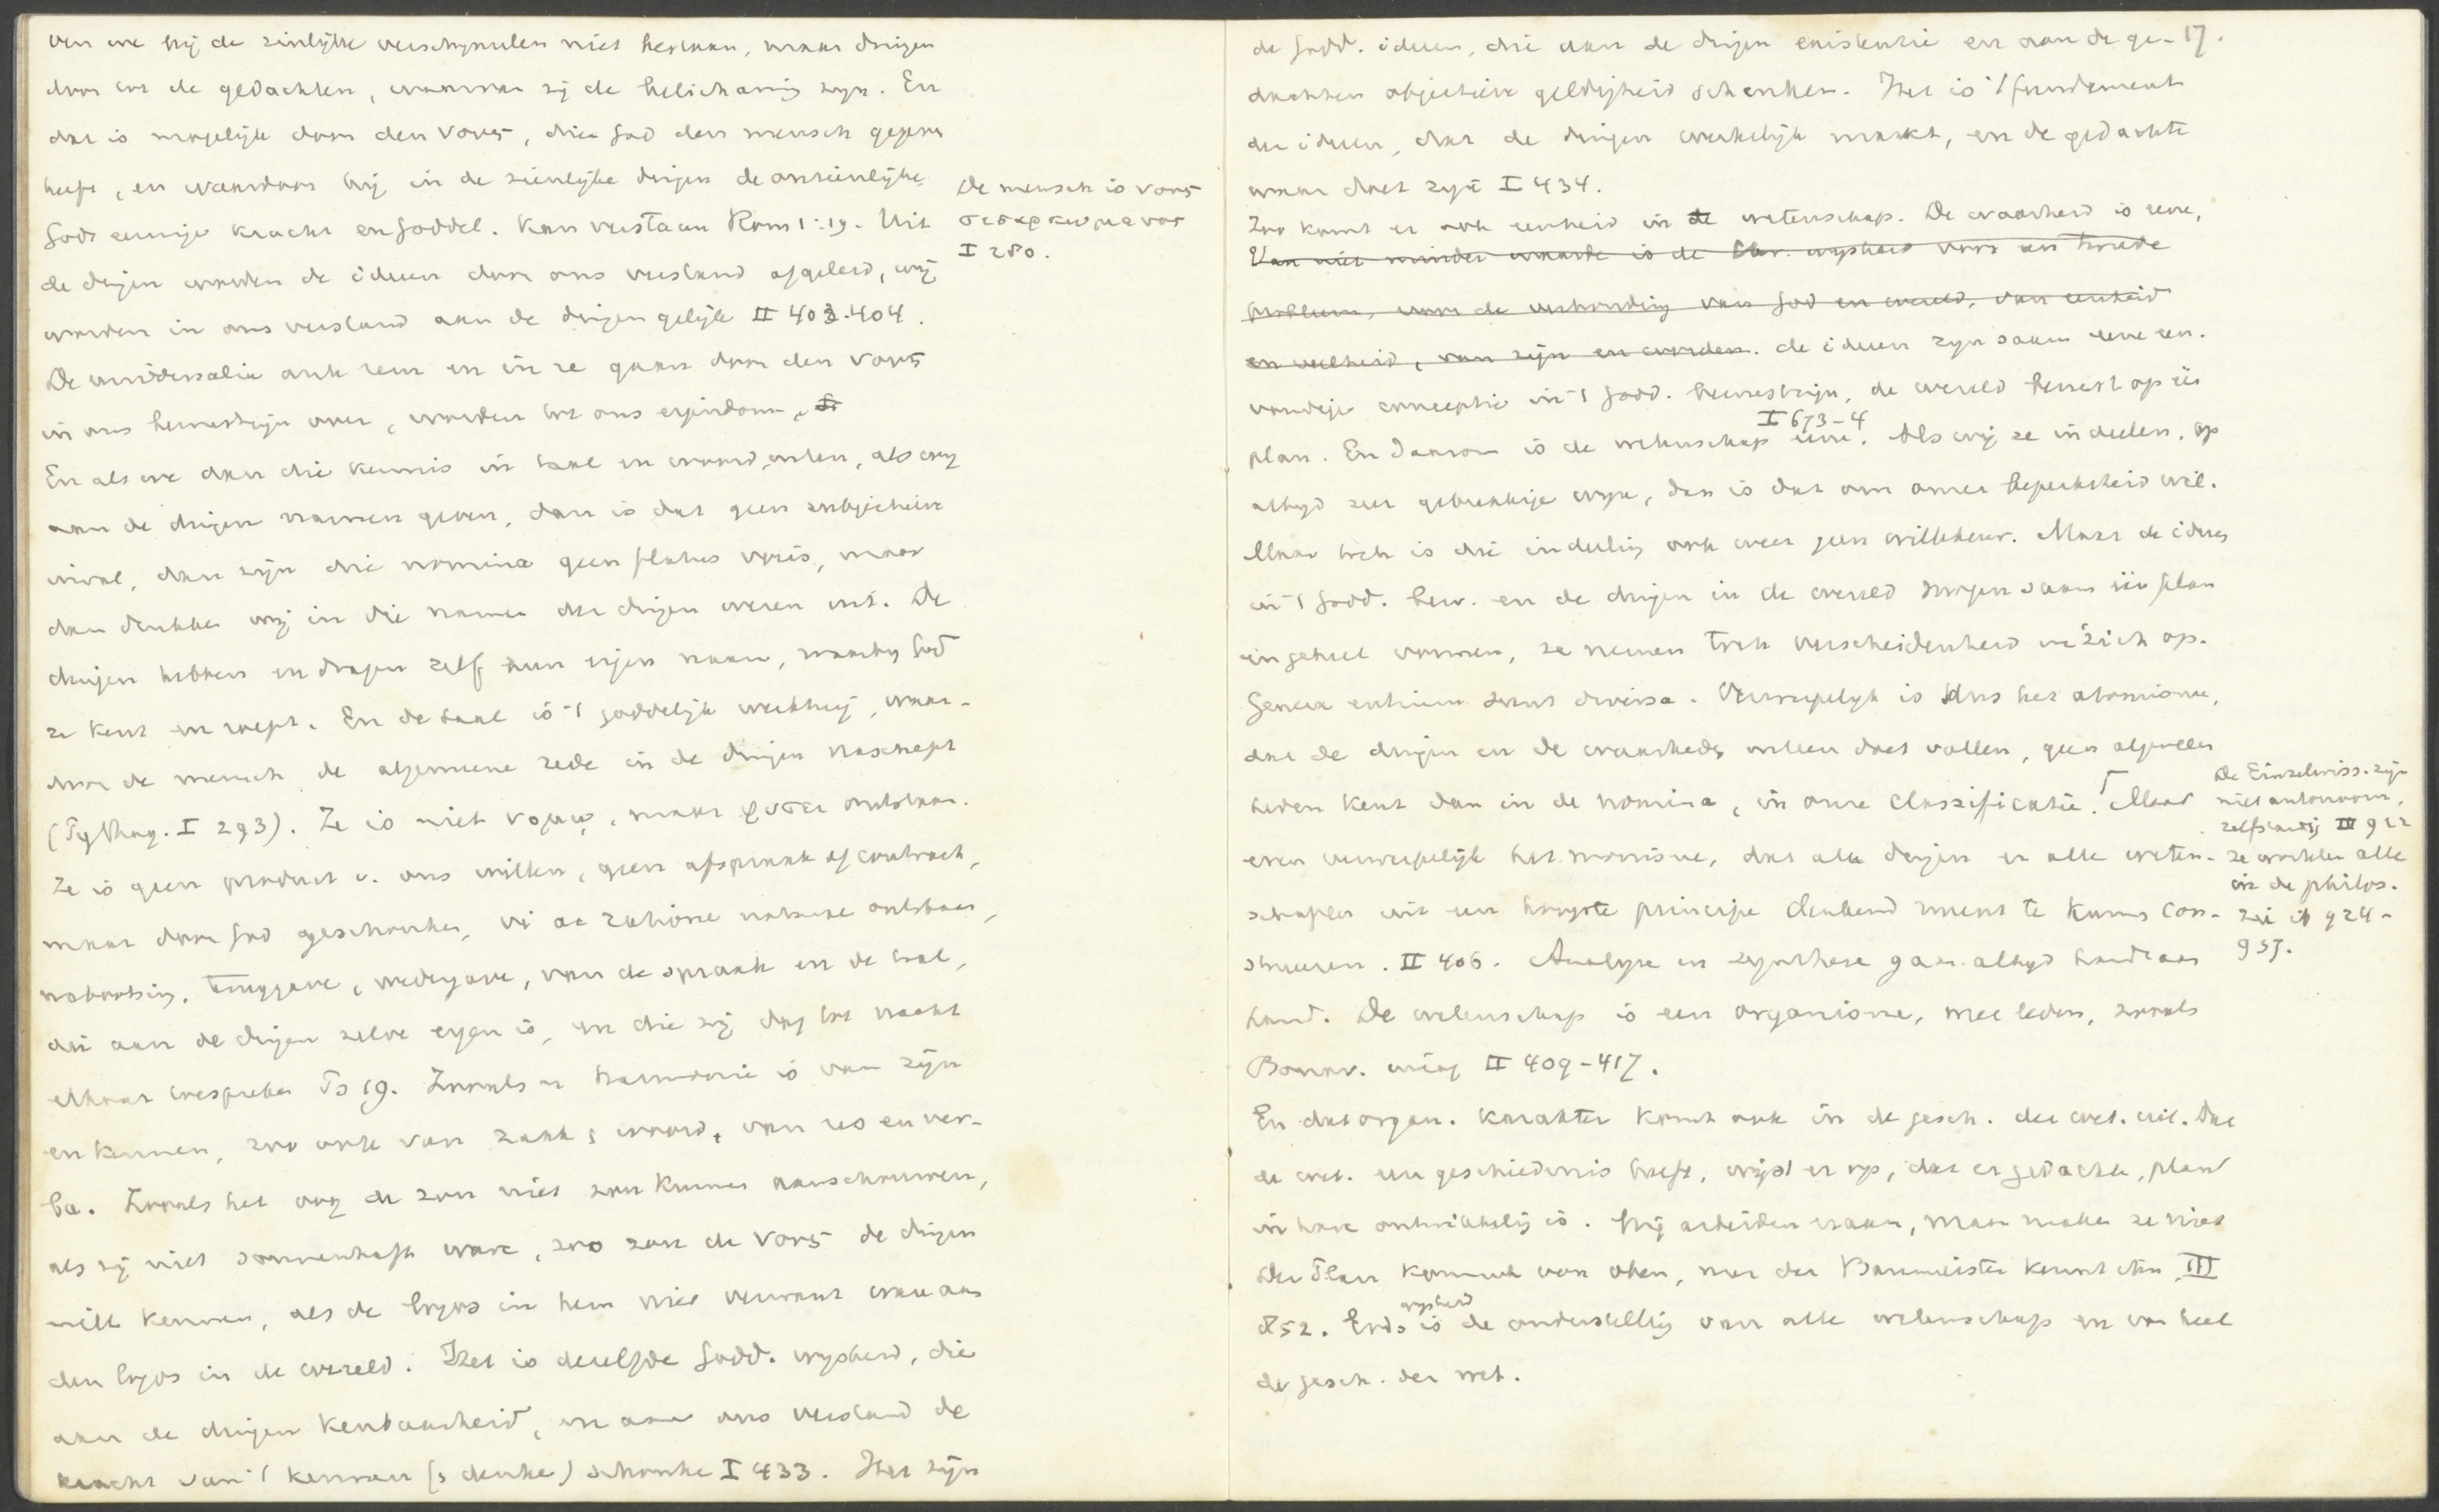 ven we bij de zinlijke verschijnselen niet bestaan, maar dringen
door tot de gedachten, waarvan zij de belichaming zijn. En
dat is mogelijk door den νους, dien God den mensch gegeven
heeft, en waardoor hij in de zienlijke dingen de onzienlijke,
Gods eeuwige kracht en Goddel. kan verstaan Rom 1:19. Uit
de dingen worden de ideeen door ons verstand afgeleid, wij
worden in ons verstand aan de dingen gelijk II 403.404.
De universalia ante rem en in re gaan door den νους
in ons bewustzijn over, worden tot ons eigendom,
En als we dan die kennis in taal en woord uiten, als wij
aan de dingen namen geven, dan is dat geen subjectieve
inval, dan zijn die nomina geen flatus vocis, maar
dan drukken wij in die namen der dingen wezen uit. De
dingen hebben en dragen zelf hun eigen naam, waarbij God
ze kent en roept. En de taal is 't goddelijk werktuig, waar-
door de mensch de algemeene rede in de dingen naschept
(Pythag. I 293). Ze is niet νομῳ, maar φυσει ontstaan.
Ze is geen product v. ons willen, geen afspraak of contract,
maar door God geschonken, vi ac ratione naturae ontstaan,
nabootsing, teruggave, wedergave, van de spraak en de taal,
die aan de dingen zelve eigen is, en die zij dag tot nacht
elkaar toespreken Ps 19. Zooals er harmonie is van zijn
en kennen, zoo ook van zaak & woord, van res en ver-
ba. Zooals het oog de zon niet zou kunnen aanschouwen,
als zij niet sonnenhaft ware, zoo zou de νους de dingen
niet kennen, als de logos in hem niet verwant ware aan
den logos in de wereld. Het is dezelfde Godd. wijsheid, die
aan de dingen kenbaarheid, en aan ons verstand de
kracht van 't kennen (& denken) schonk I 433. Het zijn
De mensch is νους
σεσαρκωμενος
I 280.
17.
de Godd. ideeen, die aan de dingen existentie en aan de ge-
dachten objectieve geldigheid schenken. Het is 't fundament
der ideeen, dat de dingen werkelijk maakt, en de gedachte
waar doet zijn I 434.
Zoo komt er ook eenheid in de wetenschap. De waarheid is eene,
Van niet minder waarde is de Chr. wijsheid voor een tweede
probleem, voor de verhouding van God en wereld, van eenheid
en veelheid, van zijn en worden. de ideeen zijn saam eene een.
voudige conceptie in 't Godd. bewustzijn, de wereld berust op één
plan. En daarom is de wetenschap eene. I 673-4 Als wij ze indeelen, op
altijd zeer gebrekkige wijze, dan is dat om onzer beperktheid wil.
Maar toch is die indeeling ook weer geen willekeur. Maar de ideeen
in 't Godd. bew. en de dingen in de wereld mogen saam één plan
één geheel vormen, ze nemen toch verscheidenheid in zich op.
Genera entium sunt diversa. Verwerpelijk is dus het atomisme,
dat de dingen en de waarheden uiteen doet vallen, geen algemeen
heden kent dan in de nomina, in onze classificatie. Maar
even verwerpelijk het monisme, dat alle dingen en alle weten-
schappen uit een hoogste principe denkend meent te kunnen con-
strueeren. II 406. Analyse en synthese gaan altijd hand aan
hand. De wetenschap is een organisme, met leden, zooals
Bonav. II 409-417.
En dat organ. karakter komt ook in de gesch. der wet. uit. Dat
de wet. een geschiedenis heeft, wijst er op, dat er gedachte, plan
in hare ontwikkeling is. Wij arbeiden eraan, maar maken ze niet
Der Plan kommt von oben, nur der Baumeister kennt ihn III
852. Gods wijsheid is de onderstelling van alle wetenschap en van heel
de gesch. der wet.
De Einzelwiss. zijn
niet autonoom,
zelfstandig III 922
ze wortelen alle
in de philos.
924-
937.